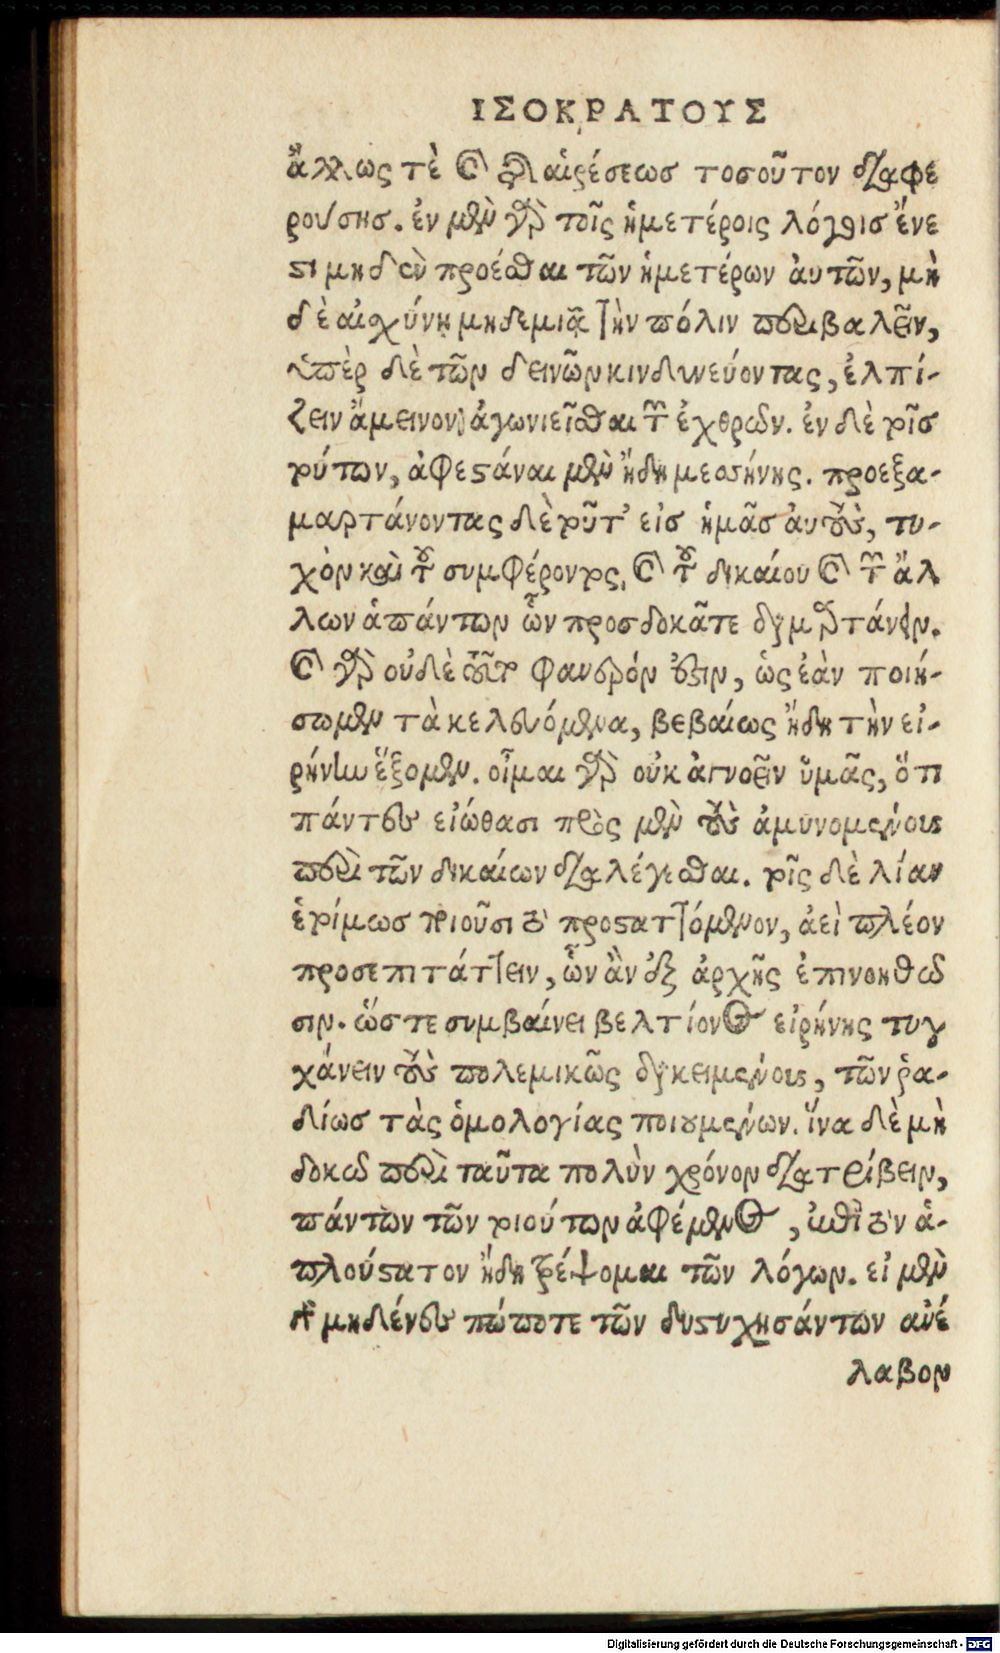 ΙΣΟΚΡΑΤΟΥΣ
ἄλλως τὲ καὶ τῆς αἱρέσεως τοσοῦτον διαφε
ρούσης. ἐν μὲν γὰρ τοῖς ἡμετέροις λόγοις ἔνε
στι μηδὲν προέσθαι τῶν ἡμετέρων αὐτῶν, μη
δὲ αἰσχύνῃ μηδεμιᾷ τὴν πόλιν περιβαλεῖν,
ὑπὲρ δὲ τῶν δεινῶν κινδυνεύοντας, ἐλπί-
ζειν ἄμεινον ἀγωνιεῖσθαι τῶν ἐχθρῶν. ἐν δὲ τοῖς
τούτων, ἀφεστάναι μὲν ἤδη μεσήνης. προεξα-
μαρτάνοντας δὲ τοῦτ' εἰς ἡμᾶς αὐτοὺς, τυ-
χὸν καὶ τοῦ συμφέροντος, καὶ τοῦ δικαίου καὶ τῶν ἄλ
λων ἁπάντων ὧν προσδοκᾶτε διαμαρτάνειν.
καὶ γὰρ οὐδὲ τοῦτο φανερόν ἐστιν, ὡς ἐὰν ποιή-
σωμεν τὰ κελευόμενα, βεβαίως ἤδη τὴν εἰ-
ρήνην ἕξομεν. οἶμαι γὰρ οὐκ ἀγνοεῖν ὑμᾶς, ὅτι
πάντες εἰώθασι πρὸς μὲν τοὺς ἀμυνομένους
περὶ τῶν δικαίων διαλέγεσθαι. τοῖς δὲ λίαν
ἑτοίμως ποιοῦσι τὸ προσταττόμενον, ἀεὶ πλέον
προσεπιτάττειν, ὧν ἂν ἐξ ἀρχῆς ἐπινοηθῶ
σιν. ὥστε συμβαίνει βελτίονος εἰρήνης τυγ
χάνειν τοὺς πολεμικῶς διακειμένους, τῶν ῥα-
δίως τὰς ὁμολογίας ποιουμένων. ἵνα δὲ μὴ
δοκῶ περὶ ταῦτα πολὺν χρόνον διατρίβειν,
πάντων τῶν τοιούτων ἀφέμενος, ἐπὶ τὸν ἁ-
πλούστατον ἤδη τρέψομαι τῶν λόγων. εἰ μὲν
γὰρ μηδένες πώποτε τῶν δυστυχησάντων ἀνέ
λαβον
Digitalisierung gefördert durch die Deutsche Forschungsgemeinschaft - DFG